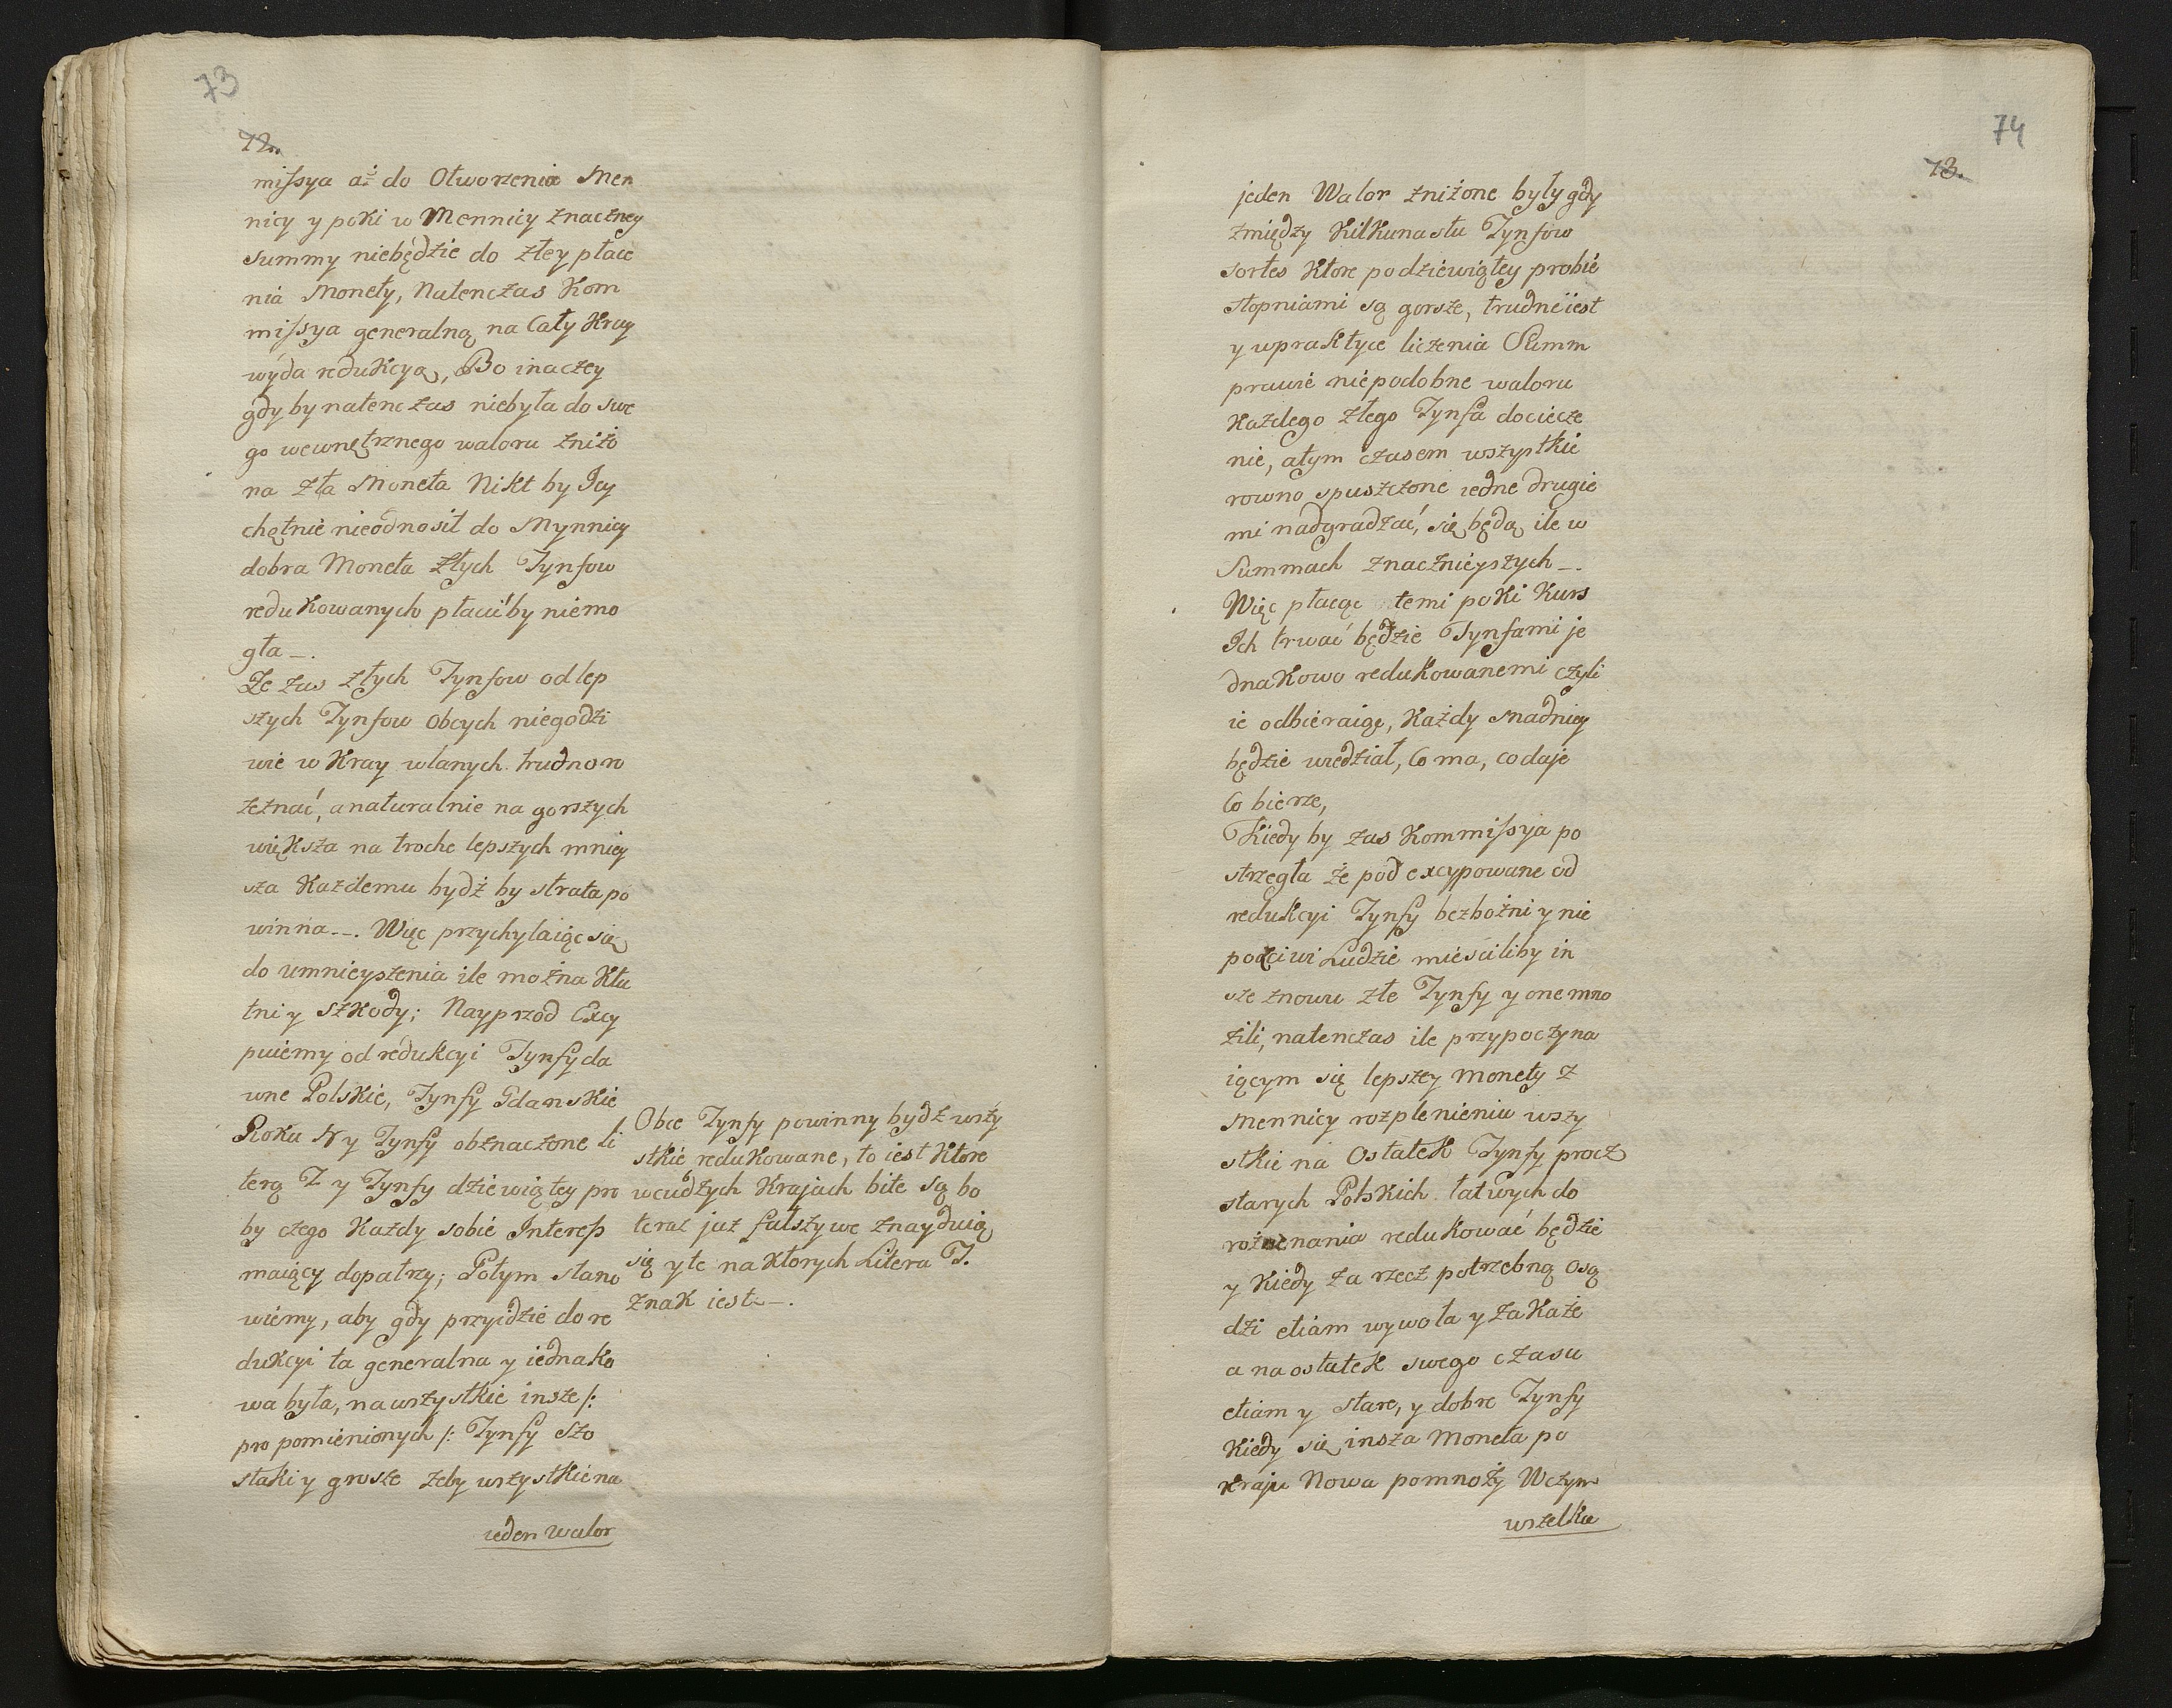 73
72.
missya aż do Otworzenia Men
nicy y poki w Mennicy znaczney
summy niebędzie do złey płace
nia Monety, Natenczas Kom
missya generalną na Cały Kray
wyda redukcyą, Bo inaczey
gdy by natenczas niebyła do swe
go wewnętrznego waloru zniżo
na zła Moneta Nikt by Jey
chętnie nieodnosił do Mynnicy
dobra Moneta złych Tynfow
redukowanych płacićby niemo
gła_.
Ze zas złych Tynfow od lep
szych Tynfow obcych niegodzi
wie w Kray wlanych trudno ro
zeznać, a naturalnie na gorszych
większa na troche lepszych mniey
sza Kazdemu bydź by strata po
winna_. Więc przychylaiąc się
do umnieyszenia ile można Kłu
tni y szkody; Nayprzod Excy
puiemy od redukcyi Tynfy da
wne Polskie, Tynfy Gdanskie
Roku y Tynfy obznaczone li
terą T y Tynfy dziewiątey pro
by czego Każdy sobie Interess
maiący dopatrzy; Potym stano
wiemy, aby gdy przyidzie do re
dukcyi ta generalna y iednako
wa była, na wszystkie insze /:
pro pomienionych /: Tynfy szo
staki y grosze zeby wszystkie na
ieden walor
Obce Tynfy powinny bydź wszy
stkie redukowane, to iest Ktore
w cudzych Krajach bite są bo
teraz juz fałszywe znayduią
się y te na Ktorych Litera T.
znak iest_.
74
73.
jeden Walor zniżone były gdy
zmiędzy Kilkunastu Tynfow
sortes Ktore po dziewiątey probie
stopniami są gorsze, trudne iest
y w praktyce liczenia Summ
prawie niepodobne waloru
Każdego złego Tynfa dociecze
nie, a tym czasem wszystkie
rowno spuszczone iedne drugie
mi nadgradzać, się będą ile w
Summach znacznieyszych_.
Więc płacąc temi poki Kurs
Ich trwać będzie Tynfami je
dnakowo redukowanemi czyli
ie odbieraiąc, Każdy snadniey
będzie wiedział, Co ma, co daje
Co bierze,
Kiedy by zas Kommissya po
strzegła że pod excypowane od
redukcyi Tynfy bezbożni y nie
poćciwi Ludzie mieścili by in
sze znowu złe Tynfy y one mno
żili, natenczas ile przypoczyna
iącym się lepszey Monety z
Mennicy rozplenieniu wszy
stkie na Ostatek Tynfy procz
starych Polskich łatwych do
roznania redukować będzie
y Kiedy za rzecz potrzebną osą
dzi etiam wywoła y zakaże
a na ostatek swego czasu
etiam y stare, y dobre Tynfy
Kiedy się insza Moneta po
kraju Nowa pomnoży W czym
wszelka